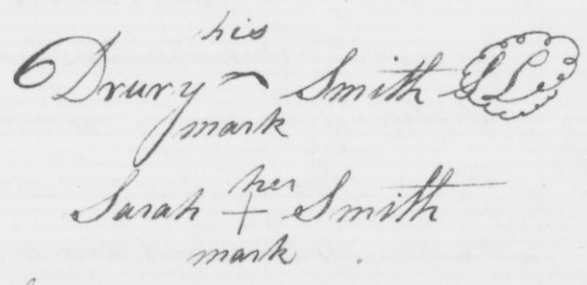 his
Drury ⁀ Smith S.L.
mark
her
Sarah + Smith
mark